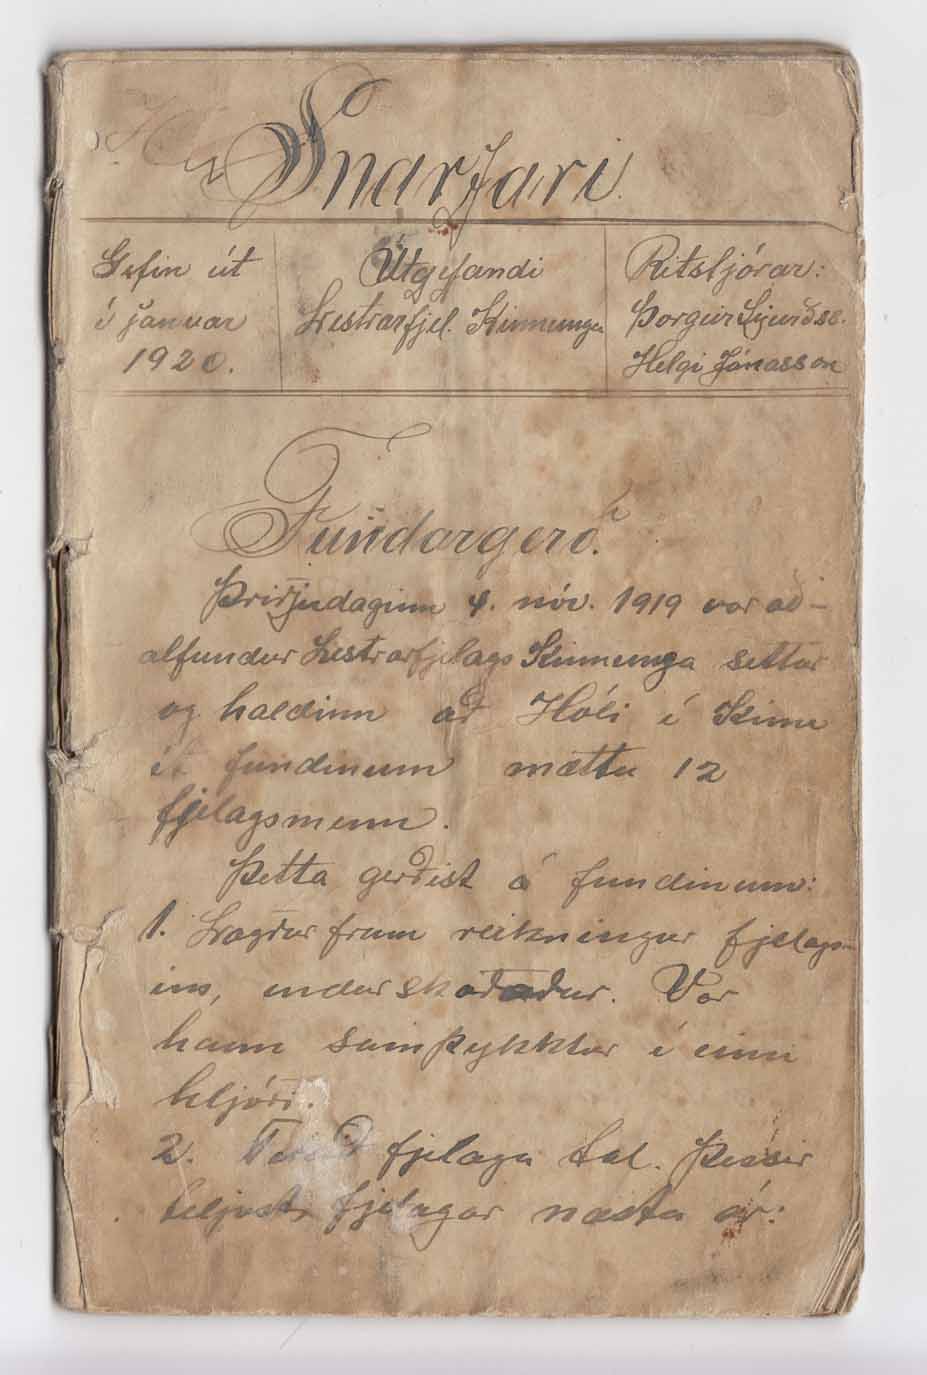 Snarfari.
Gefin út
í janúar
1920.
Útgefandi
Lestrarfjel. Kinnunga
Ritstjórar:
Þorgeir Sigurðss.
Helgi Jónasson
Fundargerð.
Þriðjudaginn 4. nóv. 1919 var að-
alfundur Lestrarfjelags Kinnunga settur
og haldinn að Hóli í Kinn
Á fundinum mættu 12
fjelagsmenn.
Þetta gerðist á fundinum:
1. Lagður fram reikningur fjelags-
ins, endurskoðaður. Var
hann samþykktur í einu
hljóði.
2. fjelaga tal. Þessir
teljast fjelagar næsta ár: